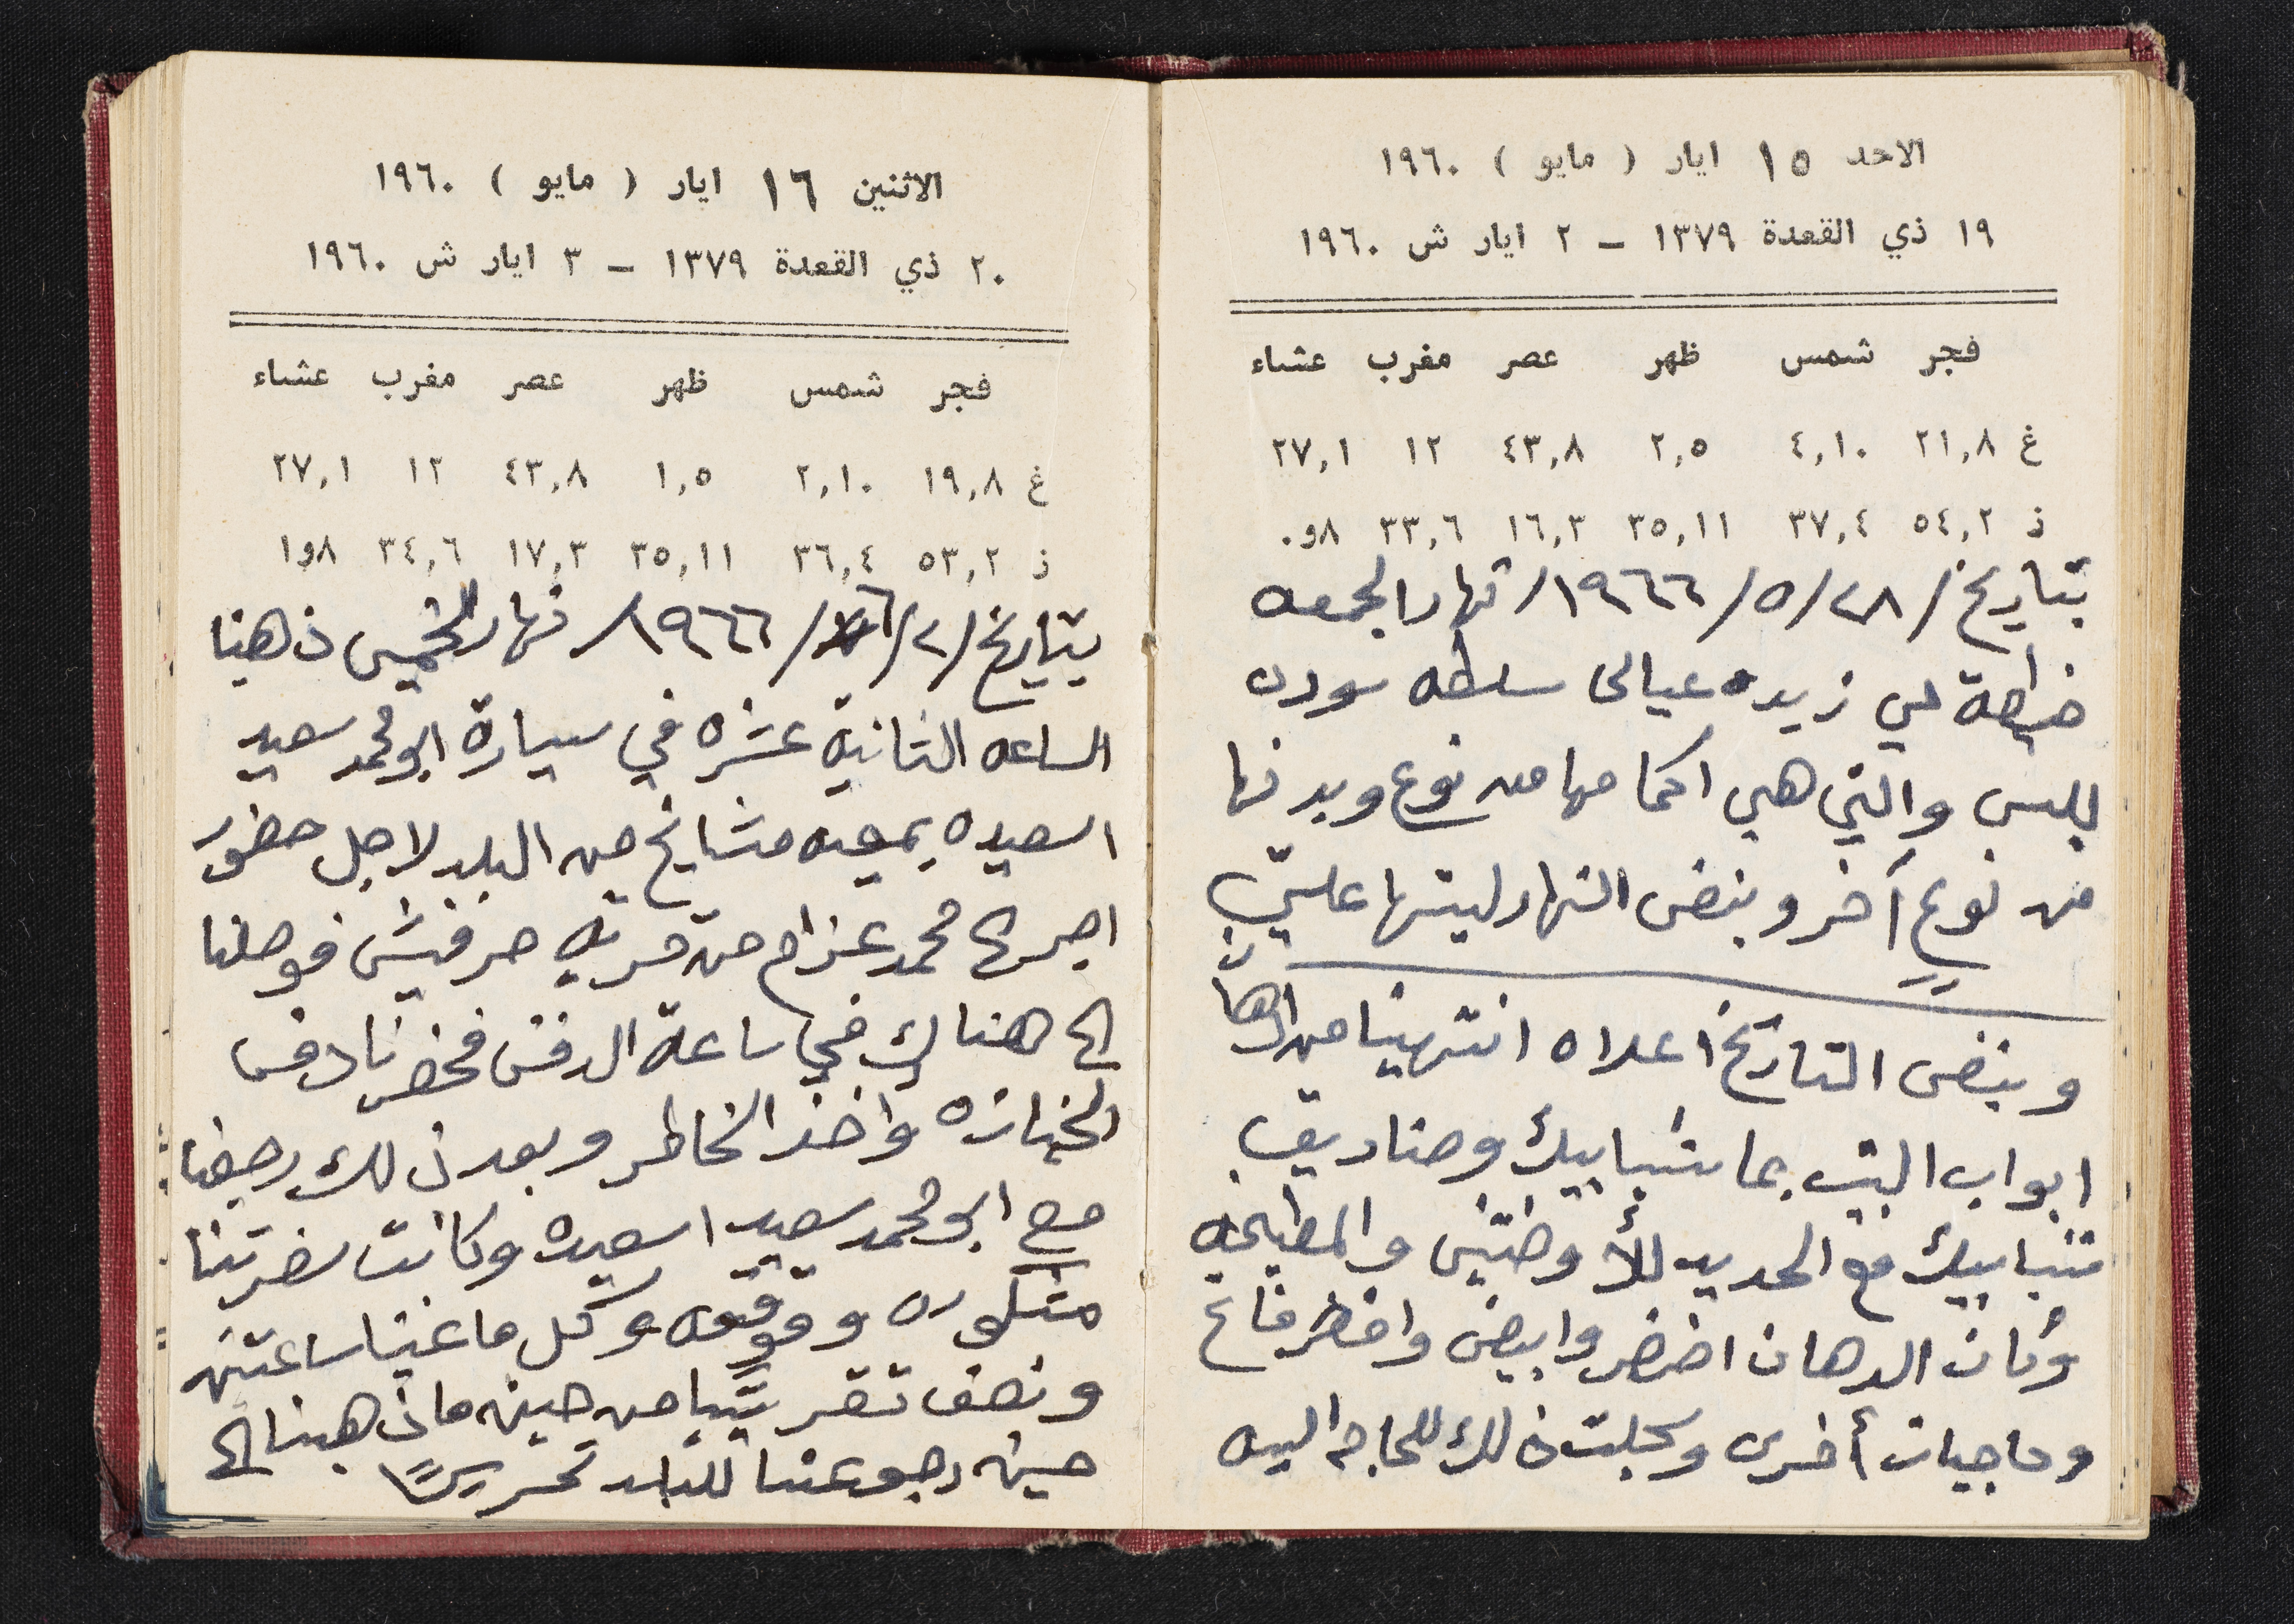 الاحد ١٥ ايار ( مايو ) ١٩٦٠
١٩ ذي القعدة ١٣٧٩ - ٢ ايار ش ١٩٦٠
فجر شمس ظهر عصر مغرب عشاء
غ ٢١,٨ ٤,١٠ ٢,٥ ٤٣,٨ ١٢ ٢٧,١
ذ ٥٤,٢ ٣٧,٤ ٣٥,١١ ١٦,٣ ٣٣,٦ ٨و٠
بتاريخ /٢٨/٥/١٩٦٦/ نهار الجمعه
خيطة لي زيده عيالى سلطه سودت
للبس والتي هي اكمامها من نوع وبدنها
من نوعٍ آخر وبنفس النهار لبستها عليّ
وبنفس التاريخ اعلاه انتهينا من دهان
ابواب البيت بما شبابيك وصناديق
شبابيك مع الحديد للأوضتين والمطبخه
وكان الدهان اخضر وابيض واخضر فاتح
وحاجيات أخرى وسجلت ذلك للحاجه اليه
الاثنين ١٦ ايار ( مايو ) ١٩٦٠
٢٠ ذي القعدة ١٣٧٩ - ٣ ايار ش ١٩٦٠
فجر شمس ظهر عصر مغرب عشاء
غ ١٩,٨ ٢,١٠ ١,٥ ٤٣,٨ ١٢ ٢٧,١
ذ ٥٣,٢ ٣٦,٤ ٣٥,١١ ١٧,٣ ٣٤,٦ ٨و١
بتاريخ /٢/٦/١٩٦٦/ نهار الخميس ذهبنا
الساعه الثانية عشره في سيارة ابو محمد سعيد
اسعيده بمعيه مشايخ من البلد لاجل حضور
اجر محمد عزام من قرية حرفيش فوصلنا
الى هناك في ساعة الدفن فحضرنا دفن
الجنازه واخذ الخاطر وبعد ذلك رجعنا
مع ابو محمد سعيد اسعيده وكانت سفرتنا
مشكوره وموفقه وكل ما غبنا ساعتين
ونصف تقريبًا من حين ما ذهبنا الى
حين رجوعنا للبلد تحريرًا